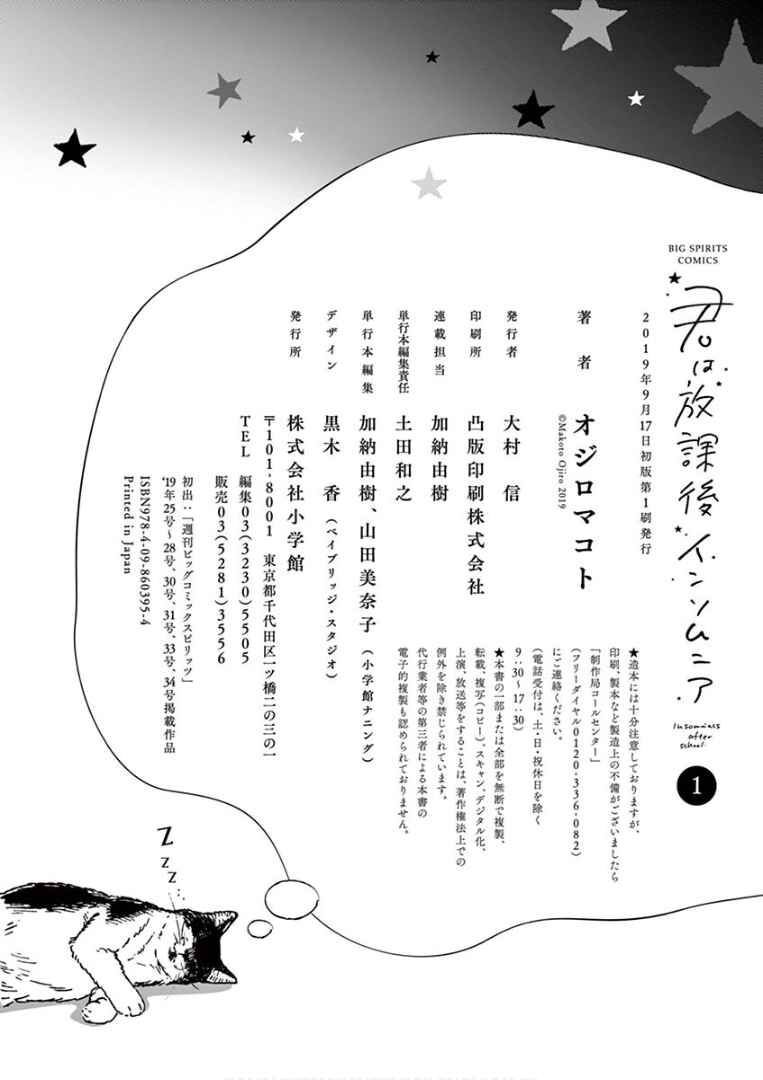 BIG SPIRITS
COMICS
君は放課後インソムニア
Insomniacs
after
school
1
2019年9月17日初版第1刷発行
著者 オジロマコト
©Makoto Ojiro 2019
発行者 大村 信
印刷所 凸版印刷株式会社
連載担当 加納由樹
単行本編集責任 土田和之
単行本編集 加納由樹、山田美奈子(小学館ナニング)
デザイン 黒木 香(ベイブリッジ・スタジオ)
発行所 株式会社小学館
〒101-8001 東京都千代田区一ツ橋二の三の一
TEL 編集03(3230)5505
販売03(5281)3556
初出:「週刊ビッグコミックスピリッツ」
'19年25号〜28号、30号、31号、33号、34号掲載作品
ISBN978-4-09-860395-4
Printed in Japan
★造本には十分注意しておりますが、
印刷、製本など製造上の不備がございましたら
「制作局コールセンター」
(フリーダイヤル0120-336-082)
にご連絡ください。
(電話受付は、土・日・祝休日を除く
9:30〜17:30)
★本書の一部または全部を無断で複製、
転載、複写(コピー)、スキャン、デジタル化、
上演、放送等をすることは、著作権法上での
例外を除き禁じられています。
代行業者等の第三者による本書の
電子的複製も認められておりません。
Z
Z
Z